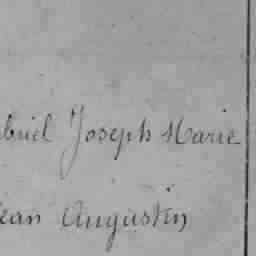 briel Joseph Marie
ean Augustin